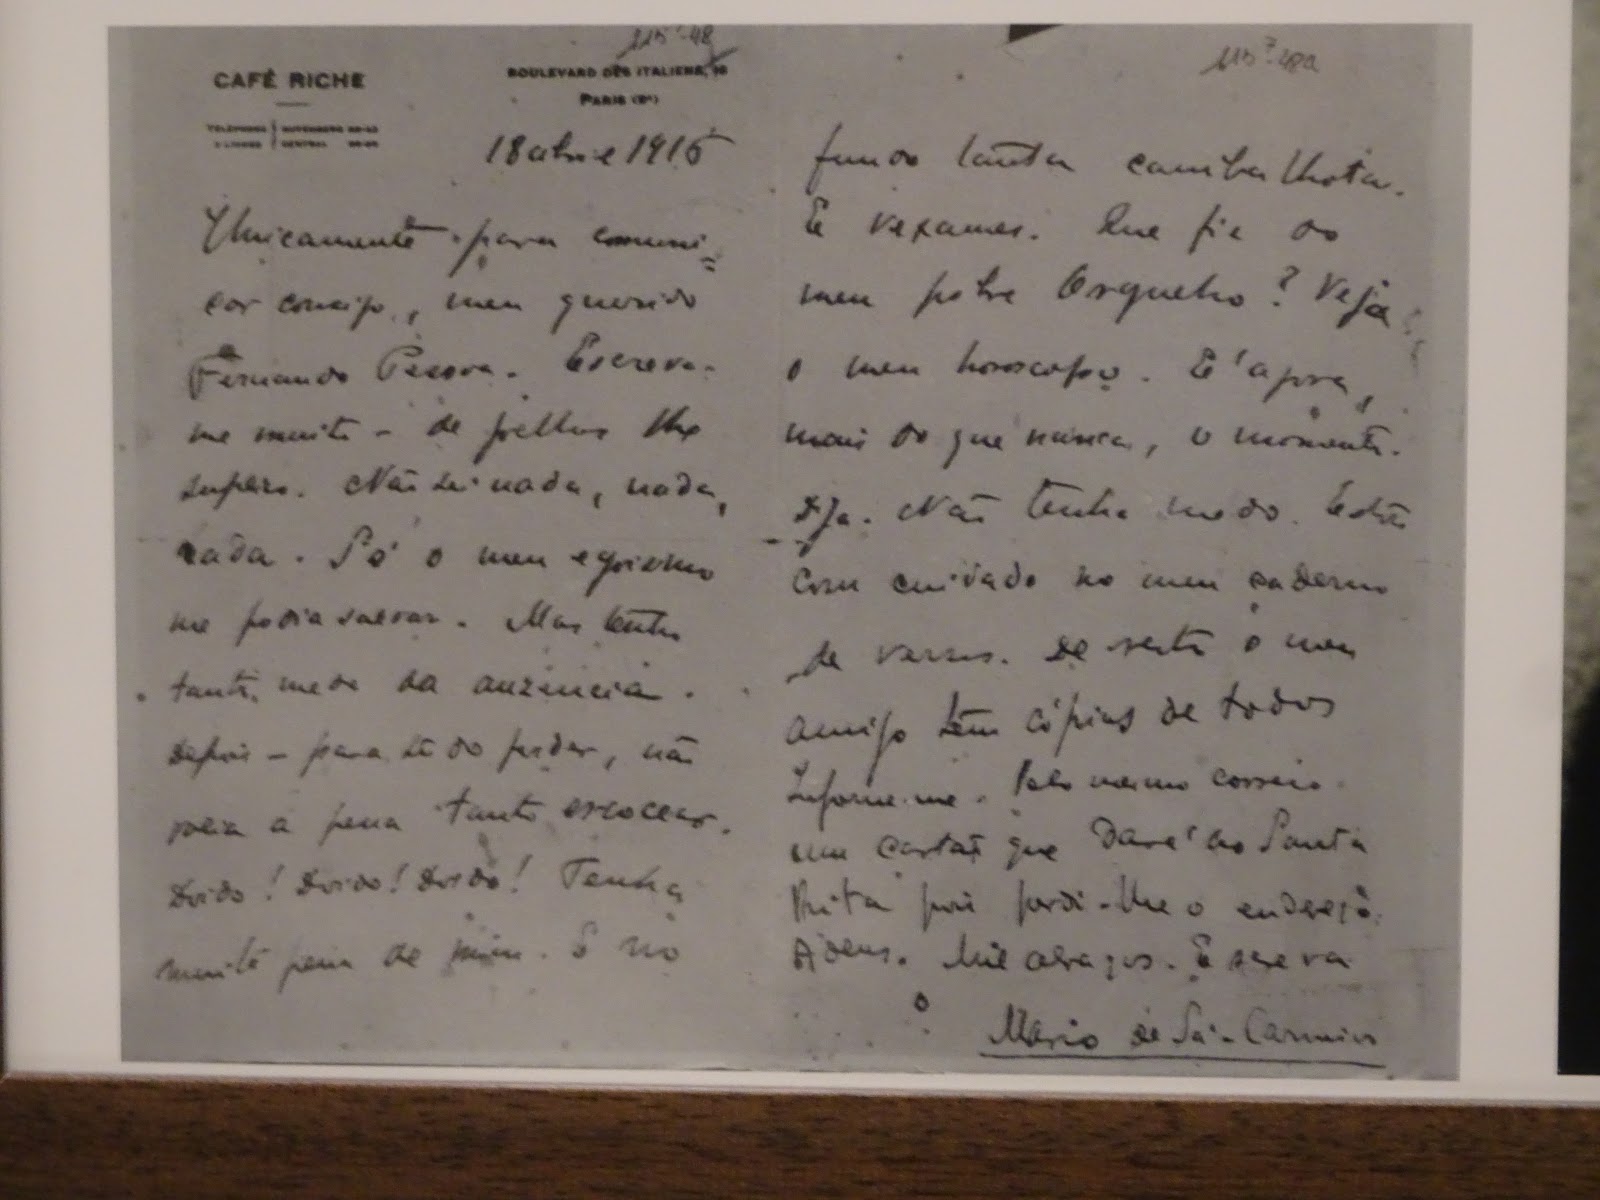 115³-48
CAFÉ RICHE
BOULEVARD DES ITALIENS, 16
PARIS (9e)
TÉLÉPHONE
2 LIGNES
GUTENBERG
CENTRAL
18 abril 1916
Unicamente para comuni-
car consigo, meu querido
Fernando Pessoa. Escreva-
me muito – de joelhos lhe
suplico. Não sei nada, nada,
nada. Só o meu egoismo
me podia salvar. Mas tenho
tanto medo da auzencia.
Depois – para tudo perder, não
valia a pena tanto escoucear.
Doido! Doido! Doido! Tenha
muita pena de mim. E no
115³-48a
fundo tanta cambalhota.
E vexames. Que fiz do
meu pobre Orgulho? Veja
o meu horoscopo. É agora,
mais do que nunca, o momento.
Diga. Não tenha medo. Estão
com cuidado no meu caderno
de versos. De resto o meu
amigo tem cópias de todos
Informe-me. Pelo mesmo correio
um cartão que dará ao Santa
Rita pois perdi-lhe o endereço.
Adeus. Mil abraços. Escreva
o
Mário de Sá-Carneiro